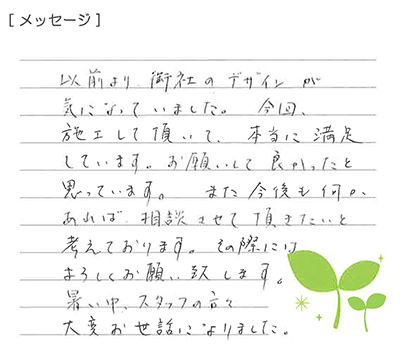 [ メッセージ ]
以前より、御社のデザインが
気になっていました。今回、
施工して頂いて、本当に満足
しています。お願いして良かったと
思っています。また今後も何か、
あれば、相談させて頂きたいと
考えております。その際には
よろしくお願い致します。
暑い中、スタッフの方々
大変お世話になりました。